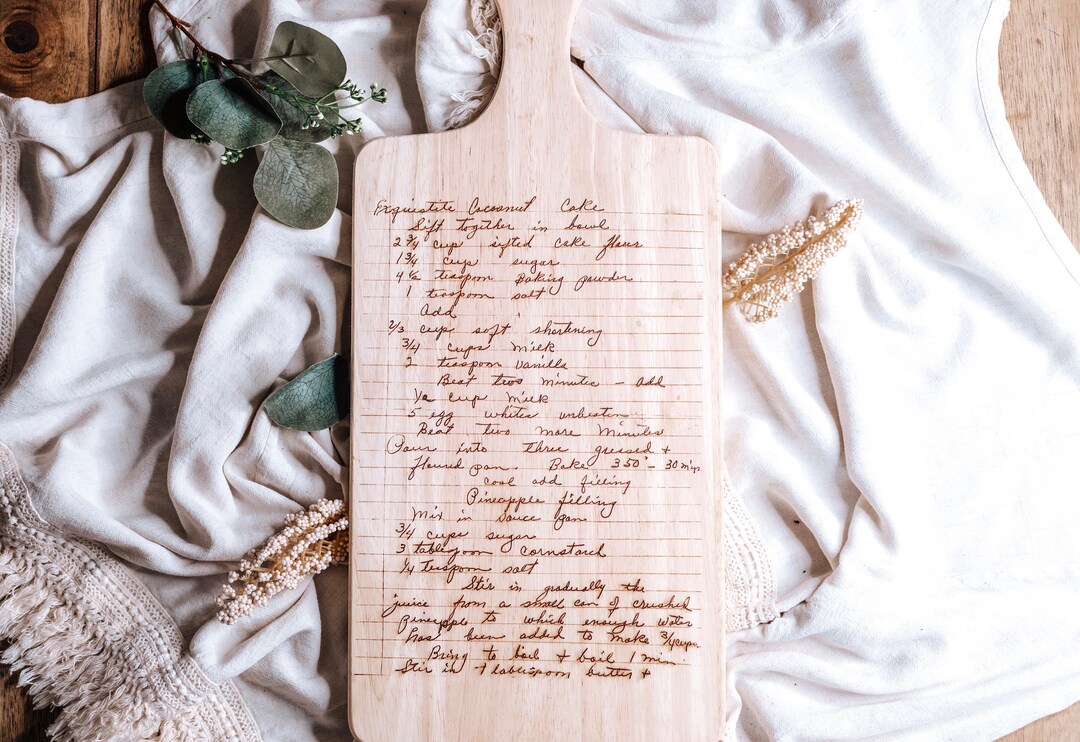 Exquistite Cocoanut Cake
Sift together in bowl
2 3/4 cup sifted cake flour
1 3/4 cup sugar
4 1/2 teaspoon Baking powder
1 teaspoon salt
Add
2/3 cup soft shortening
3/4 cups milk
2 teaspoon Vanilla
Beat two minutes - add
1/2 cup milk
5 egg whites unbeaten
Beat two more minutes
Pour into three greased +
floured pan. Bake 350° - 30 min
cool add filling
Pineapple filling
Mix in sauce pan
3/4 cups sugar
3 tablespoon cornstarch
1/4 teaspoon salt
Stir in gradually the
juice from a small can of crushed
pineapple to which enough water
has been added to make 3/4 cups
Bring to boil + boil 1 min.
Stir in 1 tablespoon butter +